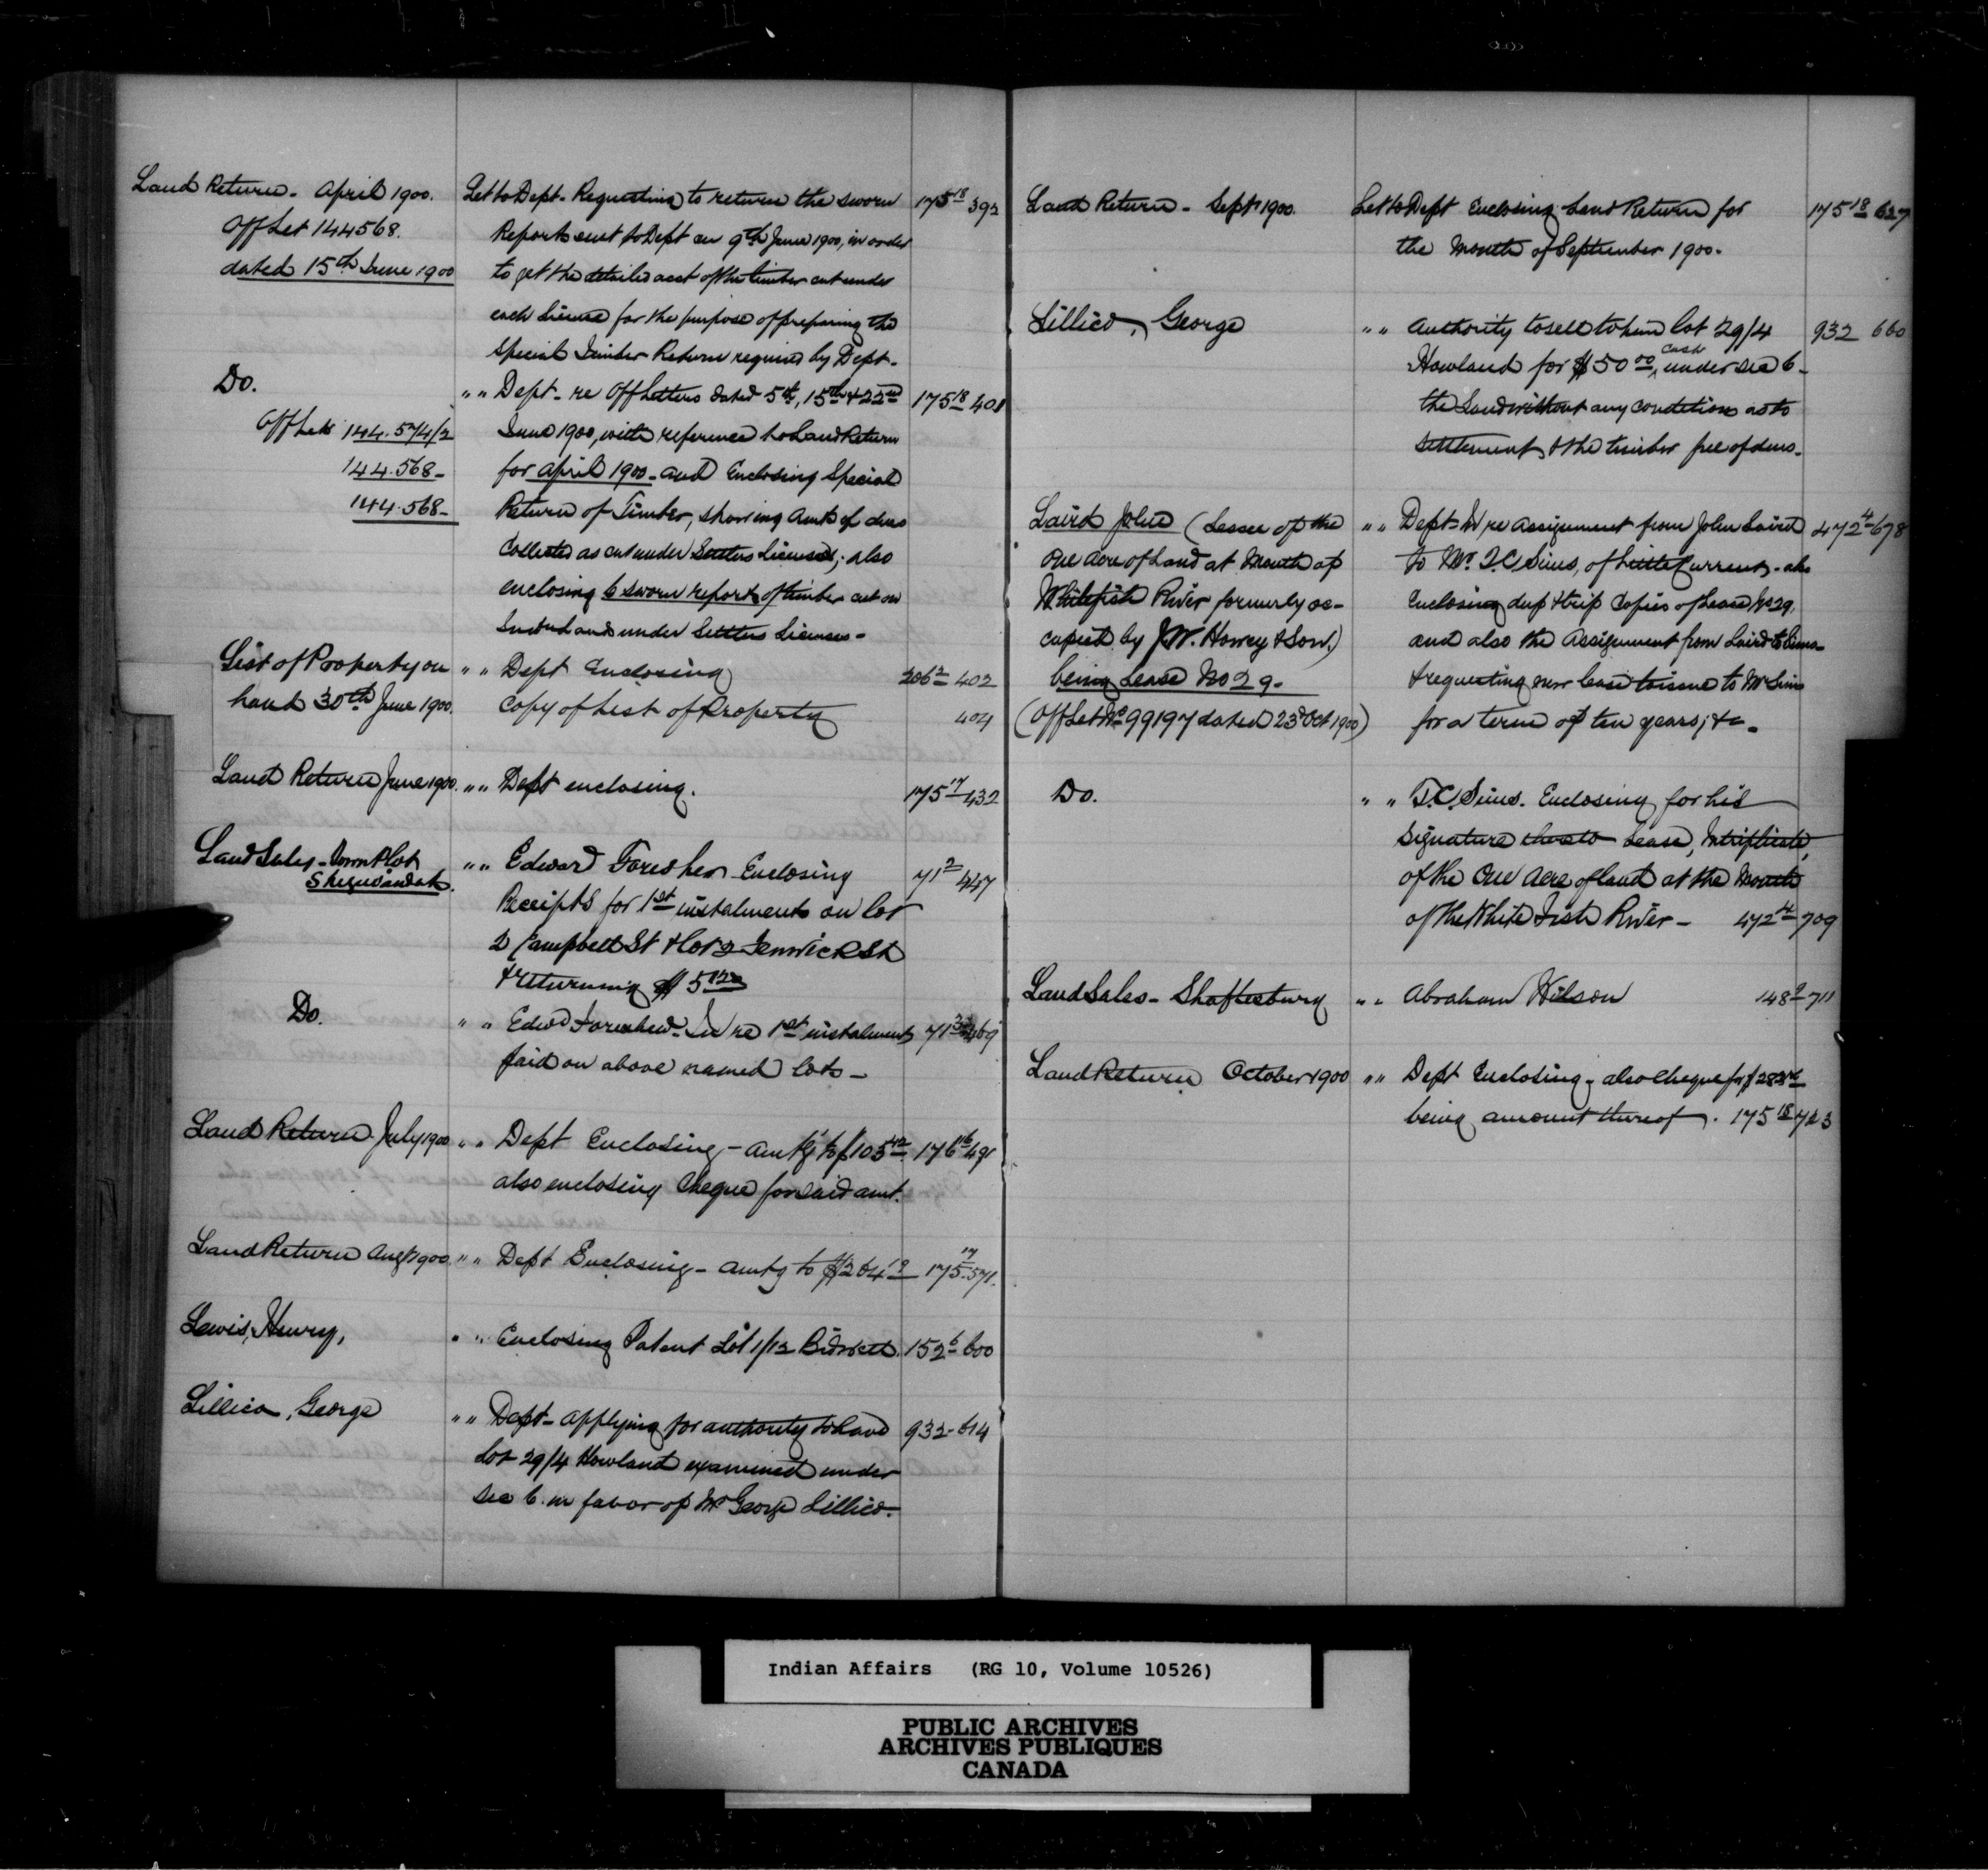 Land Return - April 1900. Let to Dept - Requesting to return the sworn 175 18 392
Off Let 144568. Reports sent to Dept on 9th June 1900, in order
dated 15th June 1900 to get the detailed acct of the timber cut under
each License for the purpose of preparing the
Special Timber Return required by Dept -
Do. " " Dept - re Off Letters dated 5th, 15th & 22nd 175 18 401
Off Lets 144.574/2 June 1900, with reference to Land Return
144.568 - for April 1900 - and Enclosing Special
144.568 - Return of Timber, showing Amts of dues
Collected as cut under Settlers Licenses; also
enclosing 6 sworn reports of timber cut on
under Settlers Licenses -
List of Property on " " Dept Enclosing 206 2 402
hand 30th June 1900. Copy of List of Property 404
Land Return June 1900. " " Dept enclosing. 175 17 432
Land Sales - Town Plot " " Edward Enclosing 71 2 447
Sheguiandah. Receipts for 1st instalments on lot
2 Campbell St & lot 2 Fenwick St
& returning $5
Do. " " Edwd In re 1st instalments 71 469
paid on above named lots -
Land Return July 1900 " " Dept Enclosing - amtg to $105 42 176 16 491
also enclosing Cheque for said amt.
Land Return Augt 1900. " " Dept Enclosing - amtg to $264 19 175 17 571.
Lewis, Henry, " " Enclosing Patent Lot 1/12 Bidwell. 152 6 600
Lillico, George " " Dept - applying for authority to have 932 - 614
Lot 29/4 Howland examined under
Sec 6. in favor of Mr George Lillico.
Land Return - Sept 1900. Let to Dept Enclosing Land Return for 175 18 627
the Month of September 1900.
Lillico, George " " Authority to sell to him lot 29/4 932 660
Howland for $50 00 cash, under sec 6 -
the Land without any conditions as to
settlement & the timber free of dues -
Laird John (Lessee of the " " Dept - In re assignment from John Laird 472 4 678
One acre of Land at Mouth of to Mr. T.C. Sims, of Little Current - also
Whitefish River formerly oc- Enclosing dup & trip Copies of Lease No 29,
cupied by J.W. Howry & Son.) and also the Assignment from Laird to Sims -
being Lease No 29 - & requesting new lease to issue to Mr Sims
(Off Let No 99197 dated 23d Oct 1900) for a term of ten years, &c -
Do. " " T.C. Sims. Enclosing for his
signature Lease, In triplicate,
of the One Acre of land at the Mouth
of the White Fish River - 472 4 709
Land Sales - Shaftesbury " " Abraham Wilson 148 9 711
Land Return October 1900 " " Dept Enclosing - also Cheque for $
being amount thereof. 175 18 723
Indian Affairs (RG 10, Volume 10526)
PUBLIC ARCHIVES
ARCHIVES PUBLIQUES
CANADA